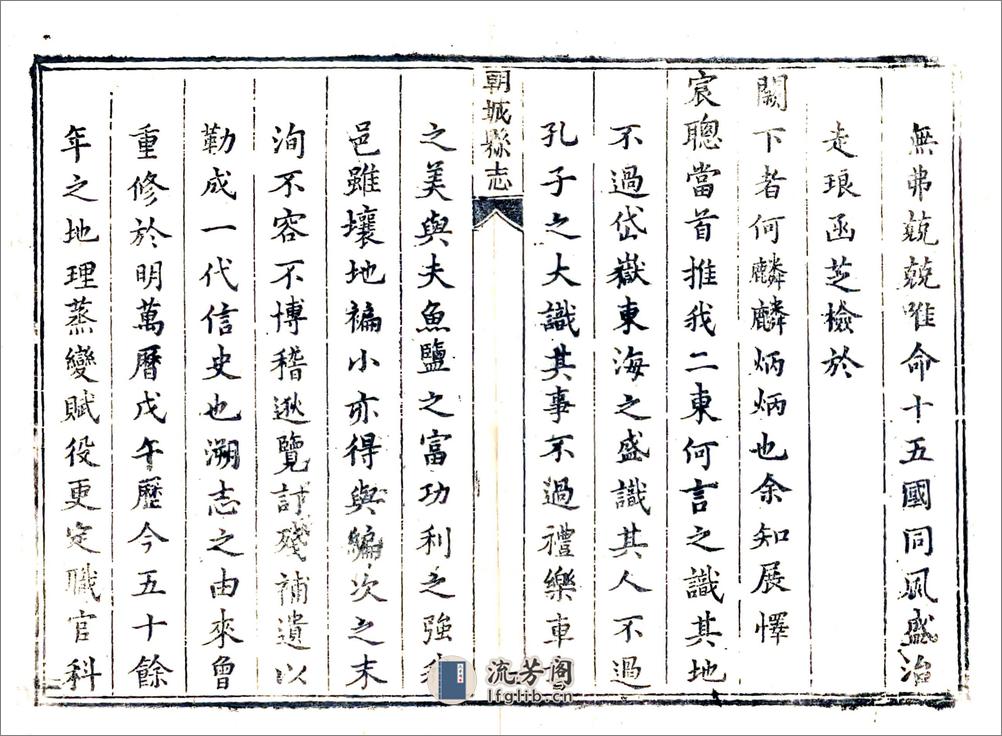 無弗兢兢唯命十五國同風盛冶
走琅函芝檢於
闕下者何麟麟炳炳也余知展懌
宸聰當首推我二東何言之識其地
不過岱嶽東海之盛識其人不過
孔子之大識其事不過禮樂車
朝城縣志
之美與夫魚鹽之富功利之強
邑雖壤地褊小亦得與編次之末
洵不容不博稽遐覽訂殘補遺以
勒成一代信史也溯志之由來曾
重修於明萬曆戊午歷今五十餘
年之地理蒸變賦役更定職官科
流芳阁
lfglib.cn